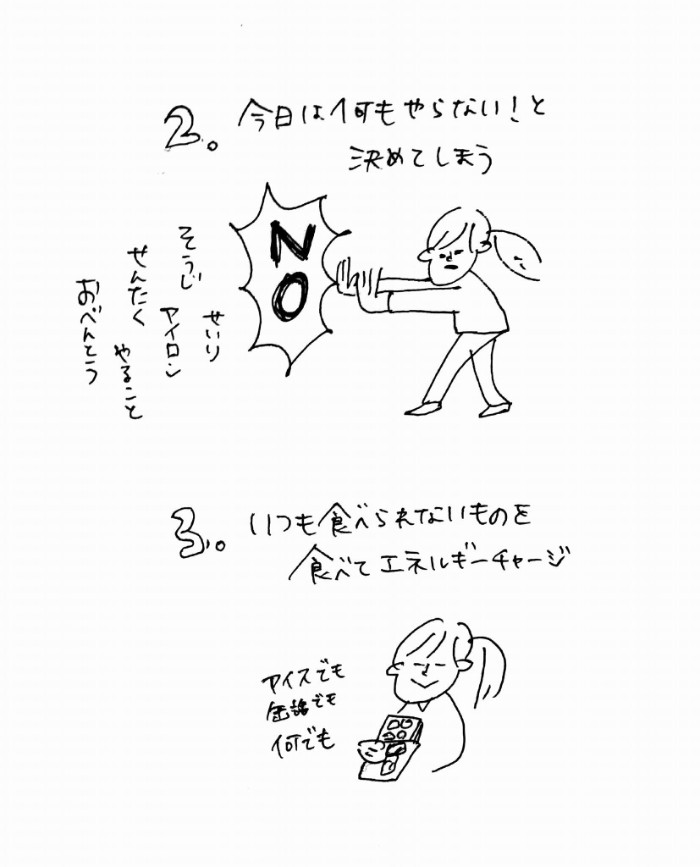 2. 今日は何もやらない！と
決めてしまう
NO
せいり
そうじ
アイロン
せんたく
やること
おべんとう
3. いつも食べられないものを
食べてエネルギーチャージ
アイスでも
缶詰でも
何でも